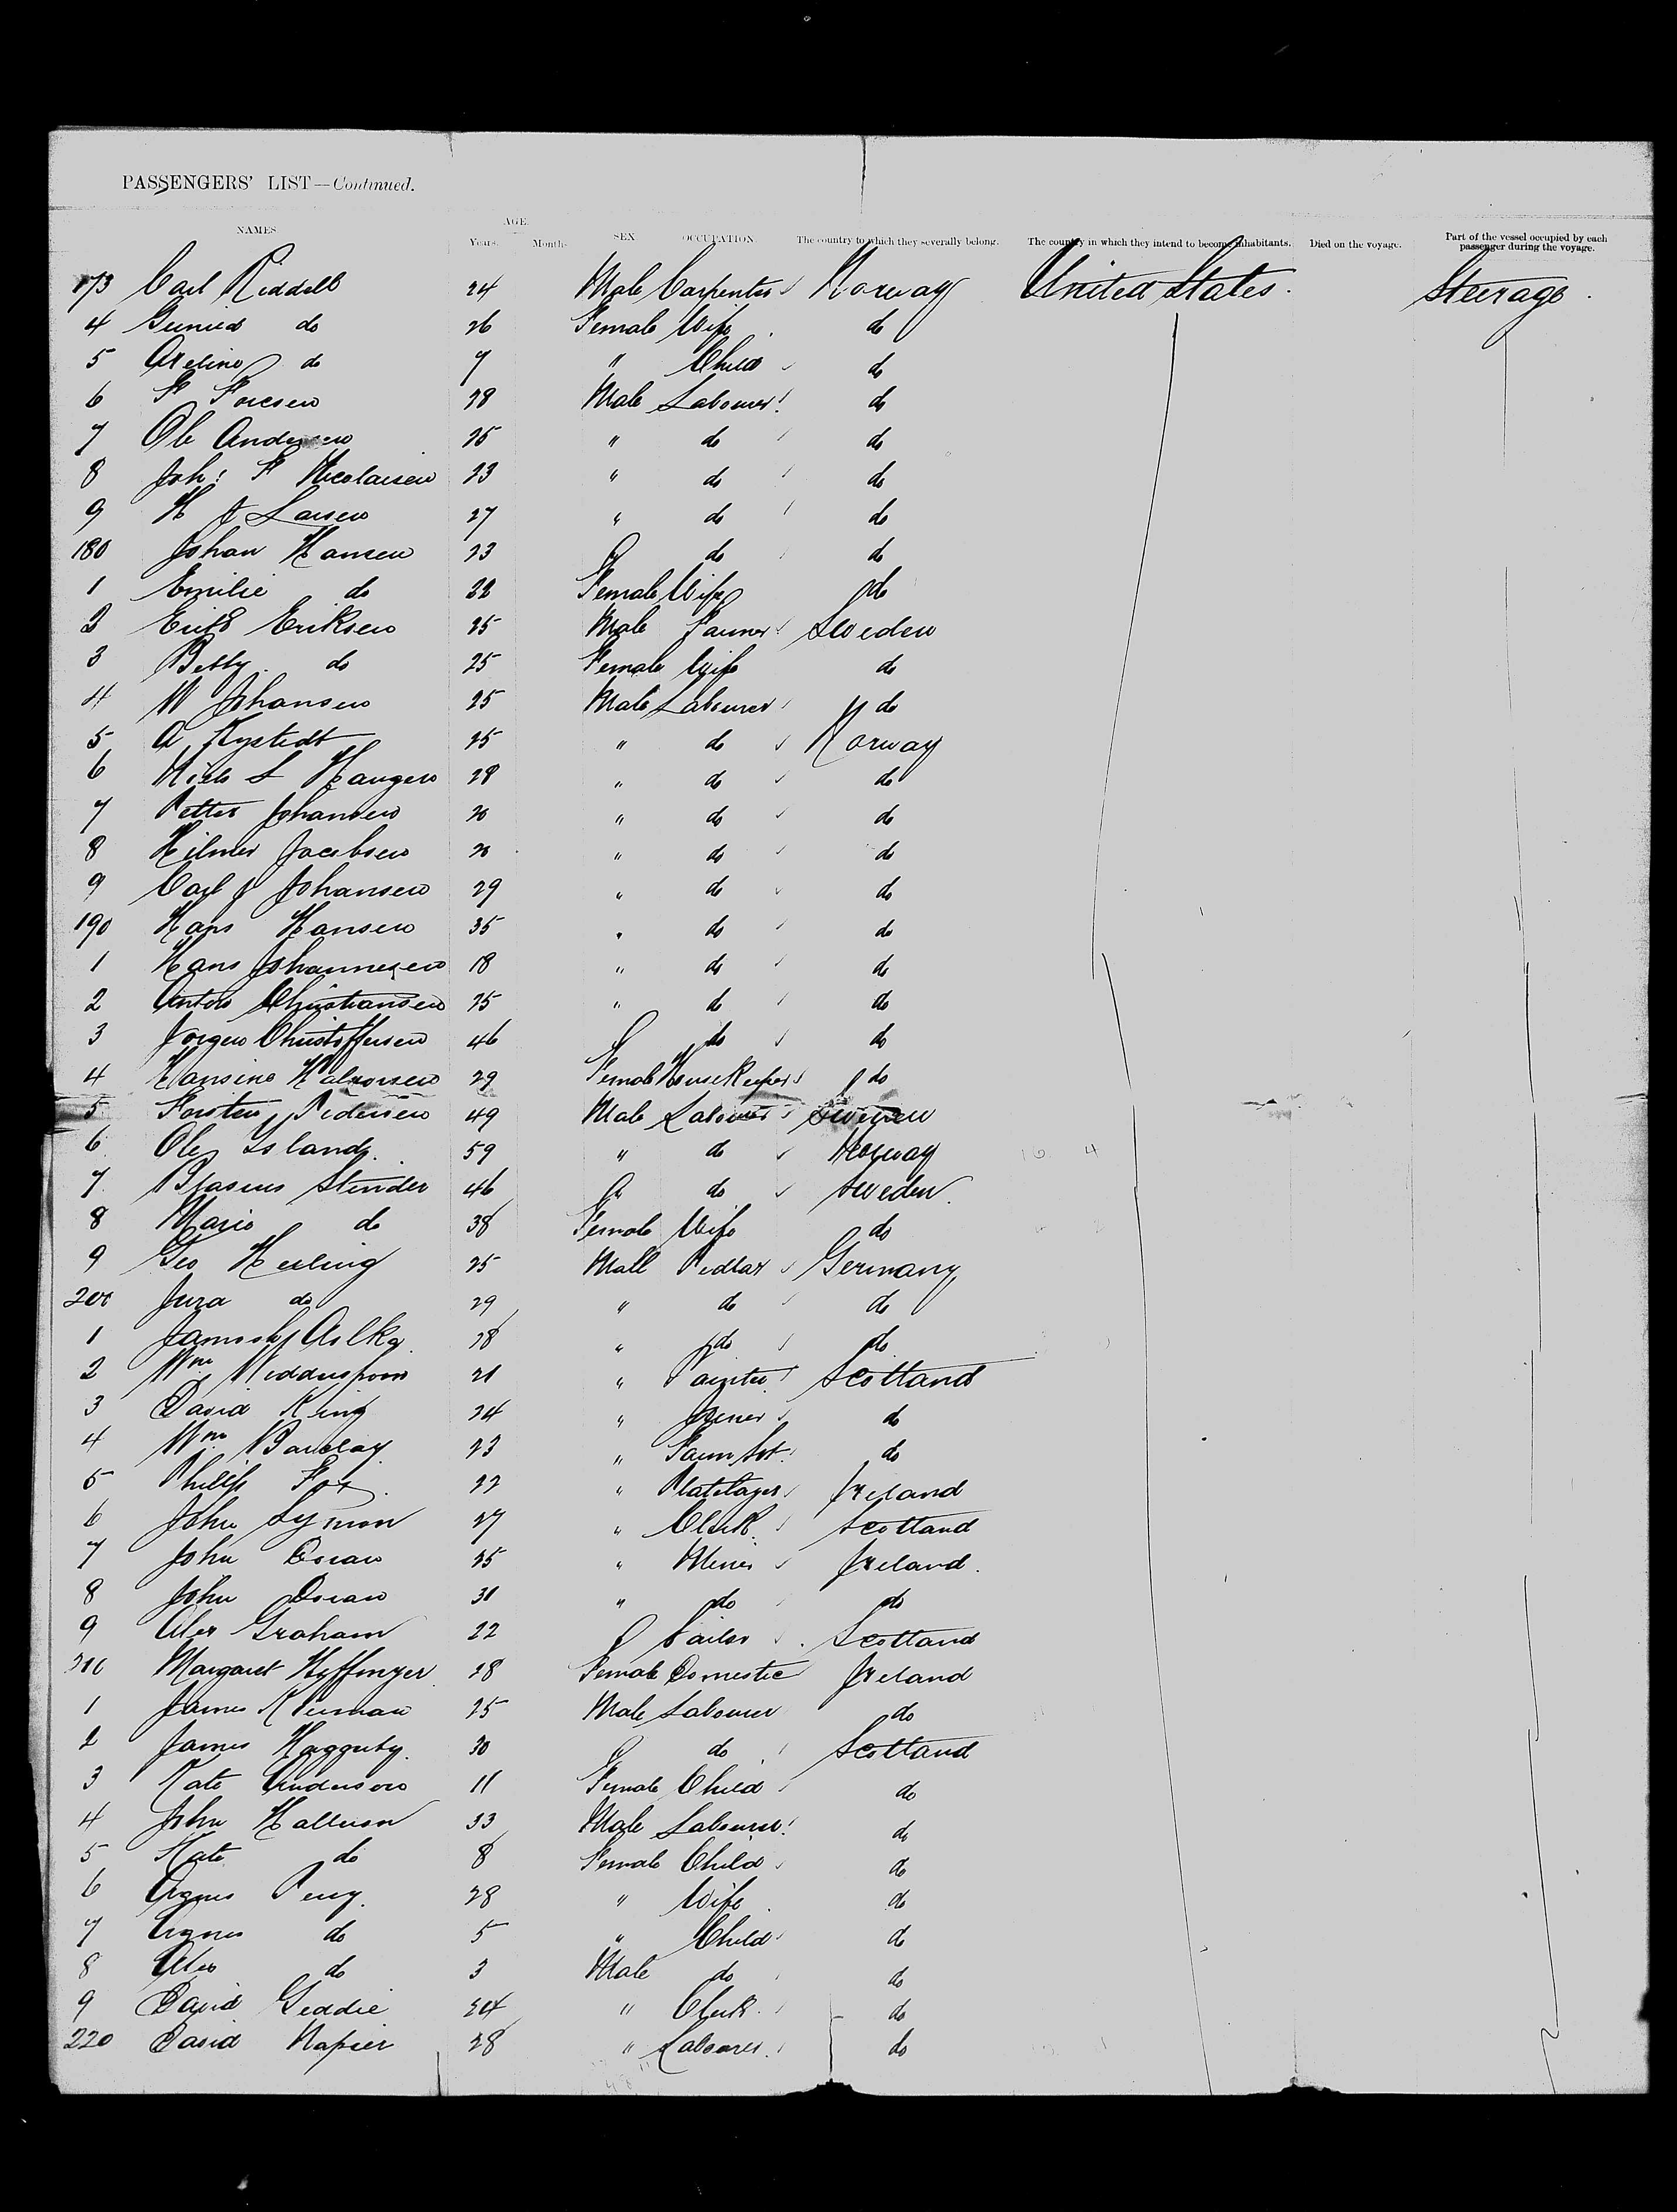 PASSENGERS' LIST—Continued.
NAMES AGE. Years. Months. SEX OCCUPATION. The country to which they severally belong. The country in which they intend to become inhabitants. Died on the voyage. Part of the vessel occupied by each passenger during the voyage.
173 Carl Riddell 24 Male Carpenter Norway United States. Steerage.
4 do 26 Female Wife do
5 do 7 " Child do
6 28 Male Labourer do
7 Ole Andersen 25 " do do
8 Joh: F Nicolaisen 23 " do do
9 H J Larsen 27 " do do
180 Johan Hansen 23 " do do
1 Emilie do 22 Female Wife do
2 Eriksen 25 Male Farmer Sweden
3 Betsy do 25 Female Wife do
4 W Johansen 25 Male Labourer do
5 A 25 " do Norway
6 Niels L Haugen 28 " do do
7 Petter Johansen 20 " do do
8 Hilmer Jacobsen 20 " do do
9 Carl J Johansen 29 " do do
190 Hans Hansen 35 " do do
1 Hans Johannesen 18 " do do
2 Anton Christiansen 25 " do do
3 Jorgen Christoffersen 46 " do do
4 Hansine Halvorsen 29 Female HouseKeeper do
5 Torsten Pedersen 49 Male Labourer Sweden
6 Ole Island 59 " do Norway
7 Blasius Stender 46 " do Sweden.
8 Marie do 38 Female Wife do
9 Geo Herling 25 Male Pedlar Germany
200 Jura do 29 " do do
1 28 " do do
2 Wm 21 " Painter Scotland
3 David King 24 " Joiner do
4 Wm Barclay 23 " do
5 Philip Fox 22 " Platelayer Ireland
6 John Symon 27 " Clerk Scotland
7 John Doran 25 " Miner Ireland.
8 John Doran 31 " do do
9 Alex Graham 22 " Sailor Scotland
210 Margaret 28 Female Domestic Ireland
1 James Kiernan 25 Male Labourer do
2 James Haggerty 30 " do Scotland
3 Kate Anderson 11 Female Child do
4 John 33 Male Labourer do
5 Kate do 8 Female Child do
6 Agnes Perry 28 " Wife do
7 Agnes do 5 " Child do
8 Alex do 3 Male do do
9 David Geddie 24 " Clerk do
220 David Napier 28 " Labourer do